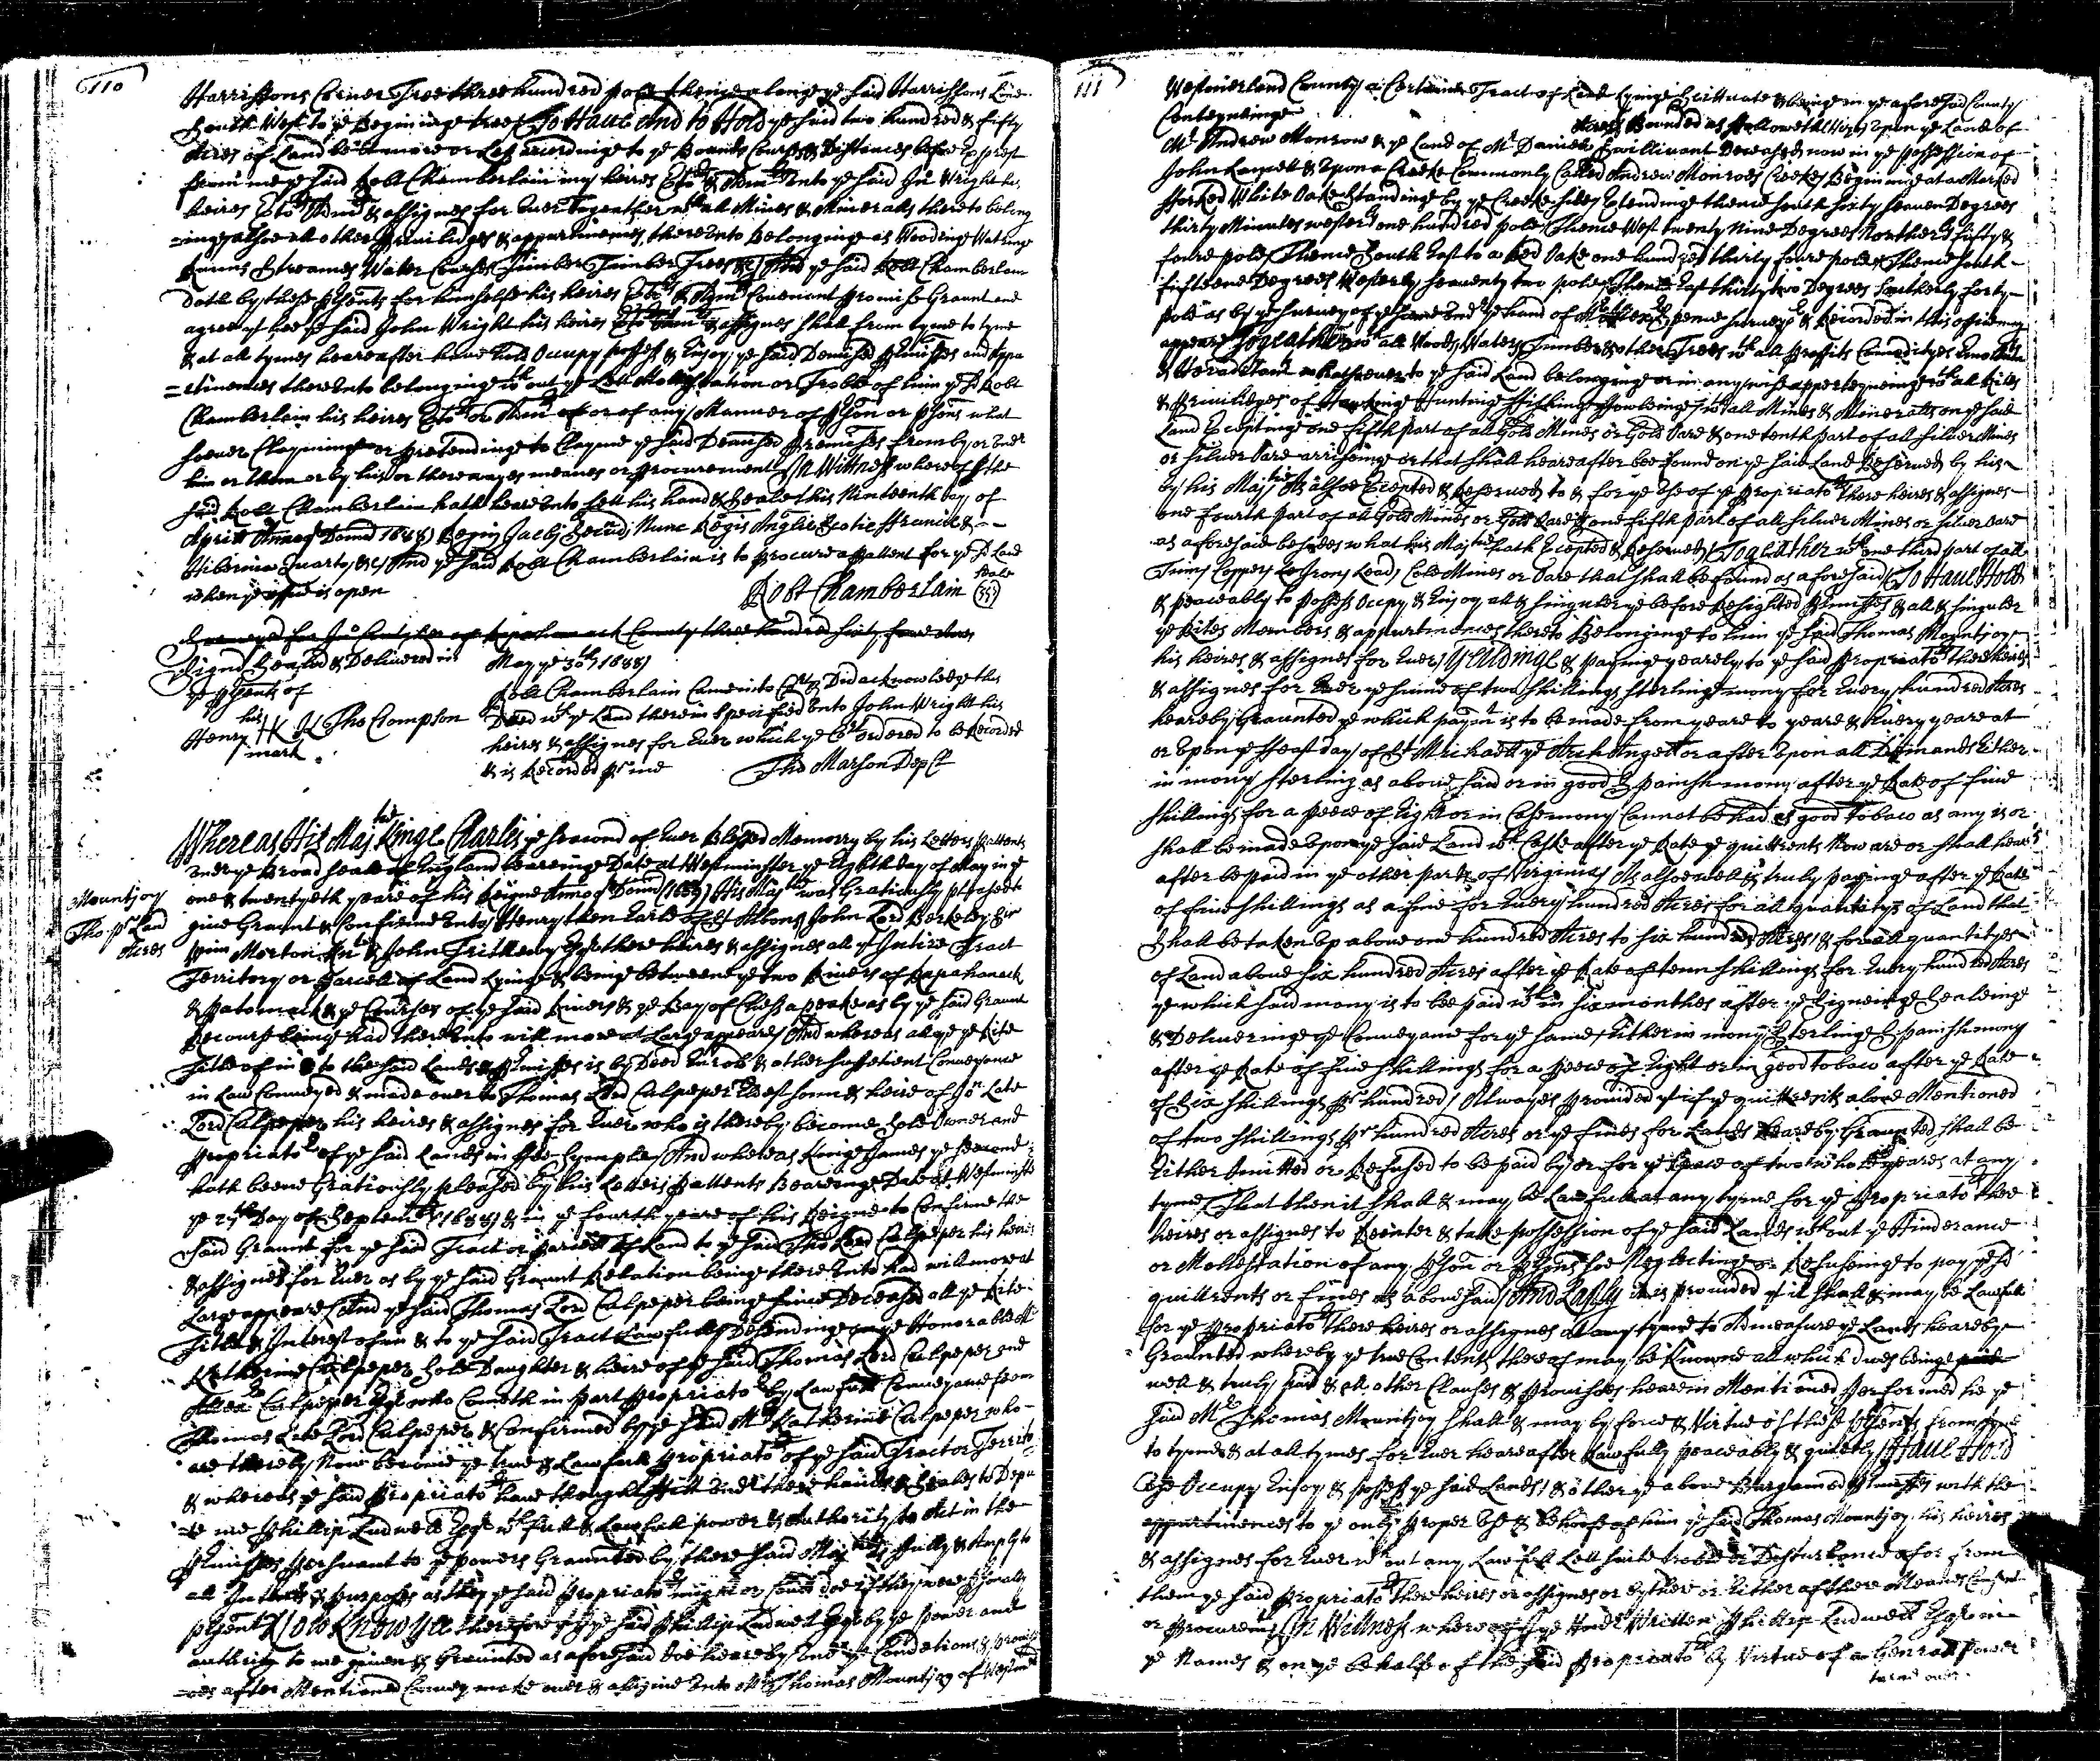 110
Harrissons Corner Tree three hundred pole thence alonge ye said Harrissons Line
South West to ye begininge tree To Have And to Hold ye said two hundred & fifty
Acres of Land be it more or Less accordinge to ye Bounds Courses & Distances before Exprest
from me ye said Robt Chamberlain my heires Exto:rs & Admrs Unto ye said Jno Wright his
heires Exto:rs Admrs & assignes for Ever Togeather wth all Mines & Mineralls thereto belong
=inge alsoe all other Priviledges & appurtinences thereUnto Belonginge as Woodinge Watringe
Streames Water Courses Timber Timber Trees &c And ye said Robt Chamberlain
doth by these psents for himselfe his heires Exto:rs & Admrs Covenant Promise Graunt and
agree yt hee ye said John Wright his heires Exto:rs Admrs & assignes shall from tyme to tyme
& at all tymes heareafter have hold Occupy posses & Enjoy ye said Demised Premisses and Appu
=rtinences thereUnto belonginge wthout ye Lett Molestation or Troble of him ye sd Robt
Chamberlain his heires Exto:rs or Admrs or of any Manner of pson or psons what
soever Clayminge or Pretendinge to Clayme ye said Demised Premisses from by or Under
him or them or by his or there meanes or Procurement In Wittness whereof I the
said Robt Chamberlain hath heareUnto sett his hand & Seale this Ninteenth day of
Aprill Annoq Domi 1688 Regni Jacbi Secudi Nunc Regis Anglie Scotie Francie &
Hibernia Quarto &c And ye said Robt Chamberlain is to Procure a Pattent for ye sd Land
when ye office is open
Robt Chamberlain
Seale
Signd Sealed & Delivered in
ye psents of
his
Henry HK Tho Thompson
mark
May ye 30th 1688
Robt Chamberlain Came into Court & Did acknowledge this
Deed wth ye Land therein Specified Unto John Wright his
heires & assignes for Ever which ye Cort ordered to be Recorded
& is Recorded pr me Tho Marson Dep Cl
Mountjoy
Tho pr Land
Acres
Whereas His Majtie Kinge Charles ye second of Ever Blessed Memorry by his Letters Pattents
Under ye Broad seale of England beareinge Date at Westminster ye Eighth day of May in ye
one & twentyeth yeare of his Reigne Annoq Domi His Matie was Gratiously pleased to
give Graunt & Confirme Unto Henry then Earle of St Albons John Lord Berkeley Sir
Wm Morton Knt & John Trithewy Esqr there heires & assignes all yt Intire Tract
Territory or Parcell of Land Lyinge & beinge betweene ye two Rivers of Rapahanack
& Patomack & ye Courses of ye said Rivers & ye Bay of Chessapeake as by ye said Graunt
Recourse beinge had thereUnto will more at Large appeare And whereas all ye Rite
Title of in & to the said Lands & Premisses is by Deed Inrold & other suffetient Conveyance
in Law Conveyed & made over to Thomas Lord Culpeper Eldest sonne & heire of Jno Late
Lord Culpeper his heires & assignes for Ever who is thereby become Sole Owner and
Propriator of ye said Lands in Fee-Symple And whereas Kinge James ye second
hath beene Gratiously pleased by his Letters Pattents Beareinge Date at Westminster
ye 27th Day of September 1688 & in ye fourth yeare of his Reigne to Confirme the
said Graunt for ye said Tract or Parcell of Land to ye said Tho Lord Culpeper his heires
& assignes for Ever as by ye said Graunt Relation being thereUnto had will more at
Large appeare And ye said Thomas Lord Culpeper being since Deceased all ye Rite
Title & Interest of in & to ye said Tract Lawfully Descendinge on ye Honorable Mrs
Katherine Culpeper Sole Daughter & heire of ye said Thomas Lord Culpeper and
Alexr Culpeper Esqr who Cometh in part Propriator by Lawfull Conveyance from
Thomas Late Lord Culpeper & Confirmed by ye said Mrs Katherine Culpeper who
are thereby Now become ye true & Lawfull Propriators of ye said Tract or Territo
& whereas ye said Propriators have thought fitt Under there hands & seales to Depu
=te me Phillip Ludwell Esqr wth full & Lawfull power & Authority to Act in the
Premisses Persuant to ye powers Graunted by there said Majties fully & Amply to
all Intents & Purposes as they ye said Propriators might or could doe if they were psonally
psent Now Know Yee therefore yt I ye said Phillip Ludwell Esqr by ye power and
authrity to me given & Graunted as aforesaid doe heareby Under ye Condetions & Provis
=oes after Mentioned Convey make over & assigne Unto Mr Thomas Mountjoy of Westmor
111
Westmerland County a Certaine Tract of Land Lyinge Scittuate & beinge in ye aforesaid County
Conteyninge Acres Bounded as followeth (Viz) Upon ye Land of
Mr Andrew Monrow & ye Land of Mr Daniell Swillivant Deceased now in ye possession of
John & Upon a Creeke Commonly Called Andrew Monroes Creeke Begininge at a Marked
forked White Oake standinge by ye Creeke side Extendinge thence south sixty seaven Degrees
thirty Minutes westerd one hundred pole Thence West twenty Nine Degrees Northerd fifty &
foure pole Thence South East to a Red Oake one hundred thirty foure pole Thence south
fifteene Degrees Westerly seaventy two pole Thence East thirty two Degrees Southerly forty
pole as by ye survey of ye Under ye hand of Mr surveyor & Recorded in this office may
appeare Togeather wth all Woods Waters Timber & other Trees wth all Proffits Comodityes Emoluments
& Heraditants whatsoever to ye said Land belonginge or in any wise apperteyneinge wth all Rites
& Priviledges of Hawkinge Huntinge Fishinge Fowleinge wth all Mines & Mineralls on ye said
Land Exceptinge one fifth part of all Gold Mines or Gold Oare & one tenth part of all silver Mines
or silver Oare arriseing or that shall heareafter bee found on ye said Land Reserved by his
by his Majtie As alsoe Excepted & Reserved to & for ye Use of ye Propriators there heires & assignes
one fourth part of all Gold Mines or Gold Oare & one fifth part of all silver Mines or silver Oare
as aforesaid besides what his Majtie hath Excepted & Reserved Togeather wth one third part of all
Tinn Copper Irons Lead Cole Mines or Oare that shall be found as aforesaid To Have Hold
& peaceably to Posses Occupy & Enjoy all & singuler ye before Resighted Premisses & all & singuler
ye Rites Members & appurtinences thereto Belonging to him ye said Thomas Mountjoy
his heires & assignes for Ever Yeildinge & payinge yearely to ye said Propriators there heires
& assignes for Ever ye sume of two shillings sterlinge mony for Every hundred Acres
heareby Graunted ye which paymt is to be made from yeare to yeare & Every yeare at
or Upon ye Feast day of St Michaell ye Arch Angell or after Upon all Demands Either
in mony sterling as above said or in good Spanish mony after ye Rate of five
shillings for a peece of Eight or in Case mony Cannot be had as good tobaco as any is or
shall be made Upon ye said Land wth Caske after ye Rate ye quittrents Now are or shall heare
after be paid in ye other parts of Virginia As alsoe well & truly payinge after ye Rate
of five shillings as a fine for Every hundred Acres for all quantityes of Land that
shall be taken Up above one hundred Acres to six hundred Acres & for all quantityes
of Land above six hundred Acres after ye Rate of tenn shillings for Every hundred Acres
ye which said mony is to be paid wth in six monthes after ye Signeinge Sealeinge
& Deliveringe ye Conveyance for ye same Either in mony Sterlinge Spanish mony
after ye Rate of five shillings for a peece of Eight or in good tobaco after ye Rate
of six shillings pr hundred Alwayes Provided yt if ye quittrents above Mentioned
of two shillings pr hundred Acres or ye fines for Lands heareby Graunted shall be
Either Omitted or Refused to be paid by or for ye space of two whole yeares at any
tyme That then it shall & may be Lawfull at any tyme for ye Propriators there
heires or assignes to Reenter & take possession of ye said Lands wthout ye Hinderance
or Mollestation of any pson or psons soe Neglectinge or Refuseinge to pay ye sd
quittrents or fines as above said And Lastly it is provided yt it shall & may be Lawfull
for ye Propriators there heires or assignes at any tyme to Admeasure ye Lands heareby
Graunted whereby ye true Contents thereof may be Knowne all which dues beinge
well & truly paid & all other Clauses & Provisoes hearein Mentioned Performed he ye
said Mr Thomas Mountjoy shall & may by force & Virtue of these psents from tyme
to tyme & at all tymes for Ever heareafter Lawfully peaceably & quietly Have Hold
Use Occupy Enjoy & posses ye said Lands & other ye above Bargained Premisses with the
appurtinences to ye only Proper Use & Behoofe of him ye said Thomas Mountjoy his heires
& assignes for Ever wthout any Lawfull Lett suite troble or Disturbance of or from
them ye said Propriators there heires or assignes or by there or Either of there Meanes Consent
or Procuremt In Wittness whereof I ye Under Written Phillip Ludwell Esqr in
ye Names & on ye behalfe of the said Propriators by Virtue of a Generall power
turne over